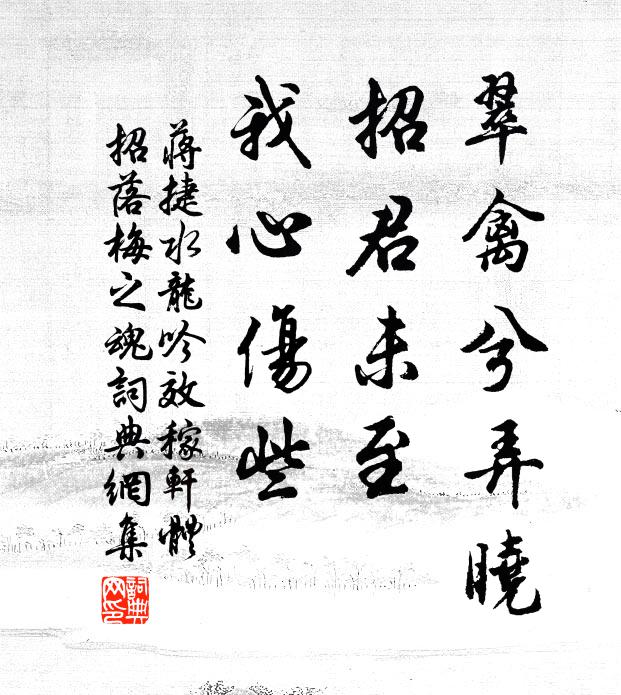 翠禽兮弄曉
招君未至
我心傷些
蔣捷水龍吟效稼軒體
招落梅之魂詞典網集
詞典網印